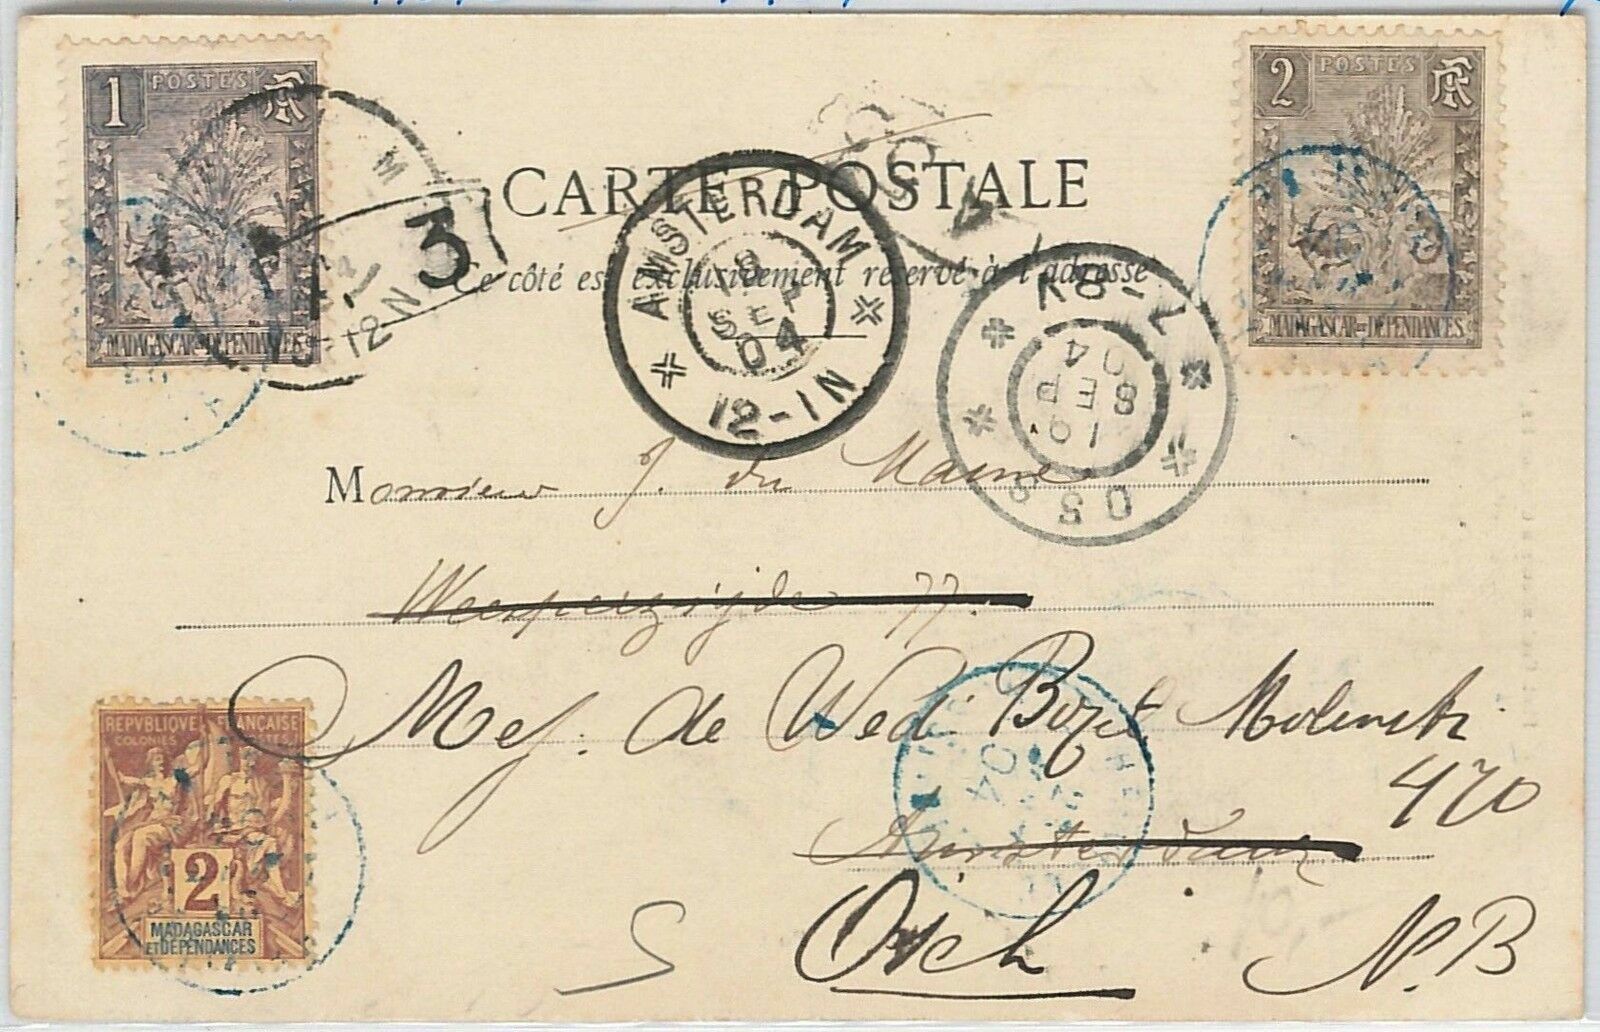 1 POSTES RF
MADAGASCAR=DÉPENDANCES
2 POSTES RF
MADAGASCAR=DÉPENDANCES
CARTE POSTALE
Ce côté est exclusivement réservé à l'adresse
3
10-12N
AMSTERDAM
18
SEP
04
12-1N
7-8V
19
SEP
04
OSS
Monsieur J. du Maine
Weesperzijde 77.
Mej. de Wed. Bozet Molenstr.
470
Amsterdam
Osch N.B
REPVBLIQVE FRANÇAISE
COLONIES POSTES
2
MADAGASCAR
ET DÉPENDANCES
04